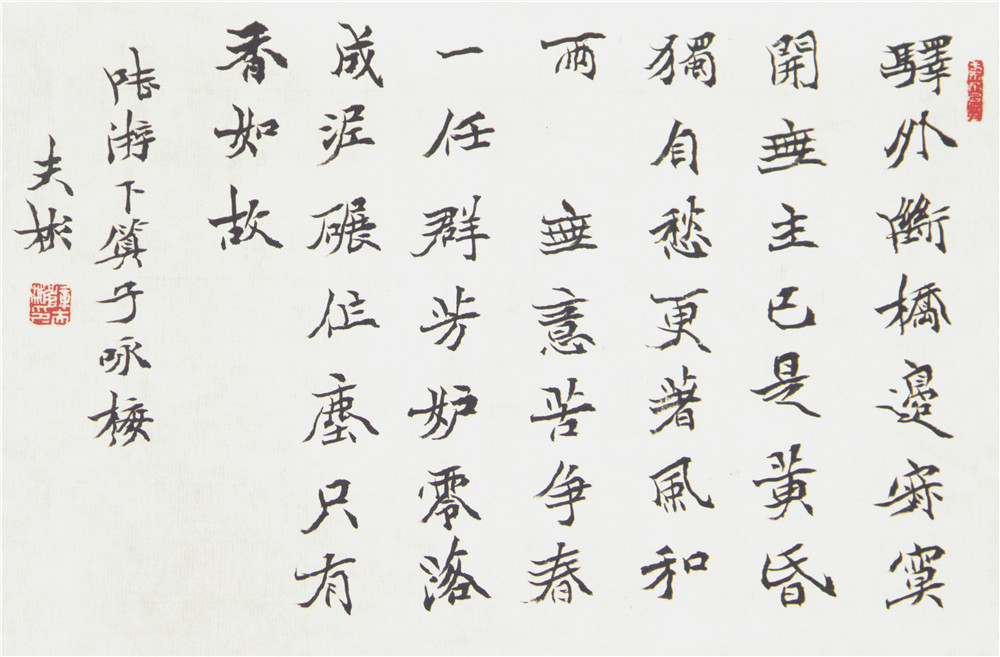 驛外斷橋邊寂寞
開無主已是黃昏
獨自愁更著風和
雨 無意苦争春
一任群芳妒零落
成泥碾作塵只有
香如故
陸游下算子咏梅
夫彬